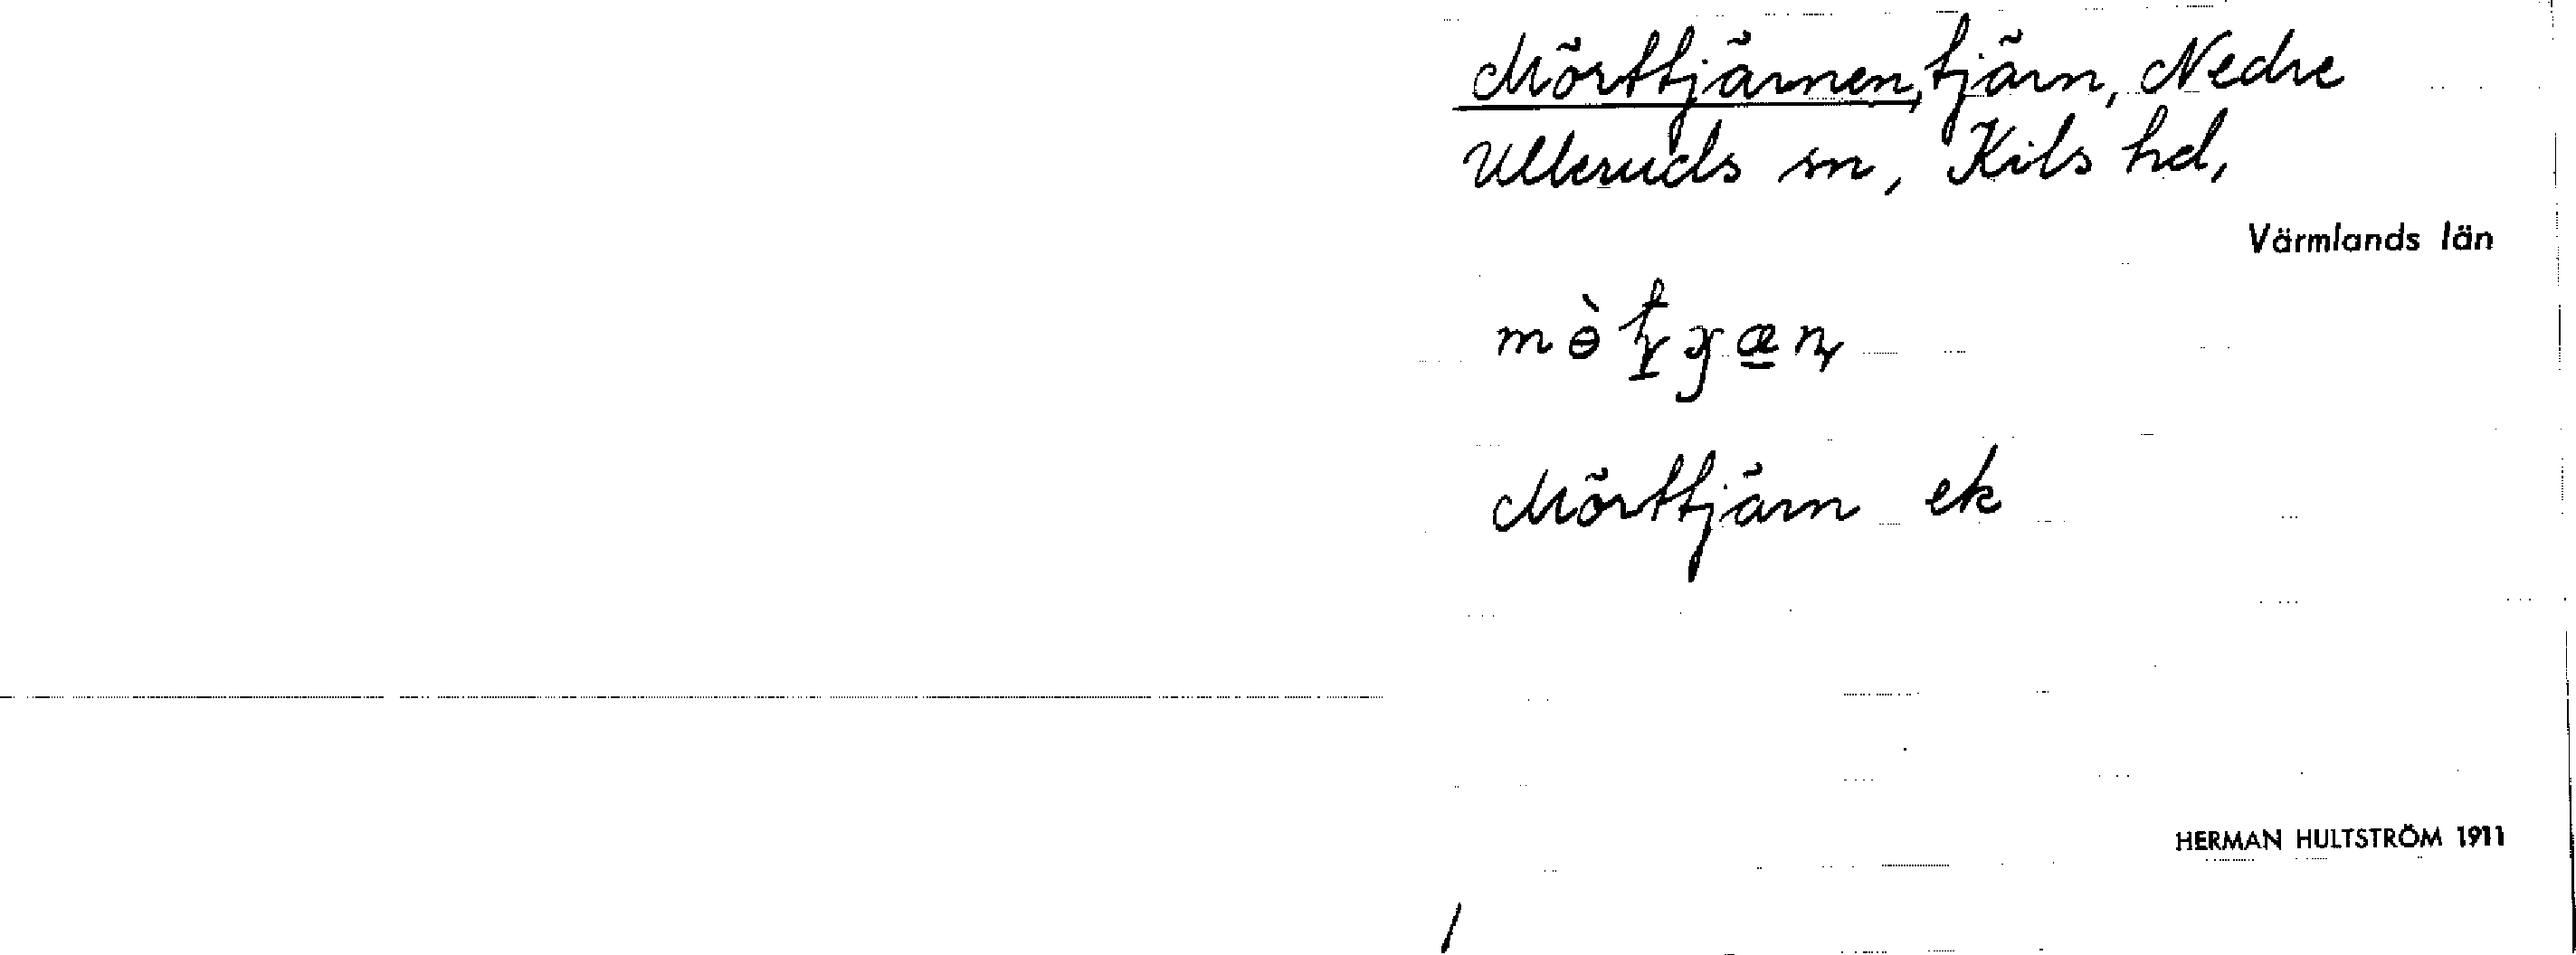 Mörttjärnen, tjärn, Nedre
Ulleruds sn, Kils hd,
Värmlands län
Mörttjärn ek
HERMAN HULTSTRÖM 1911